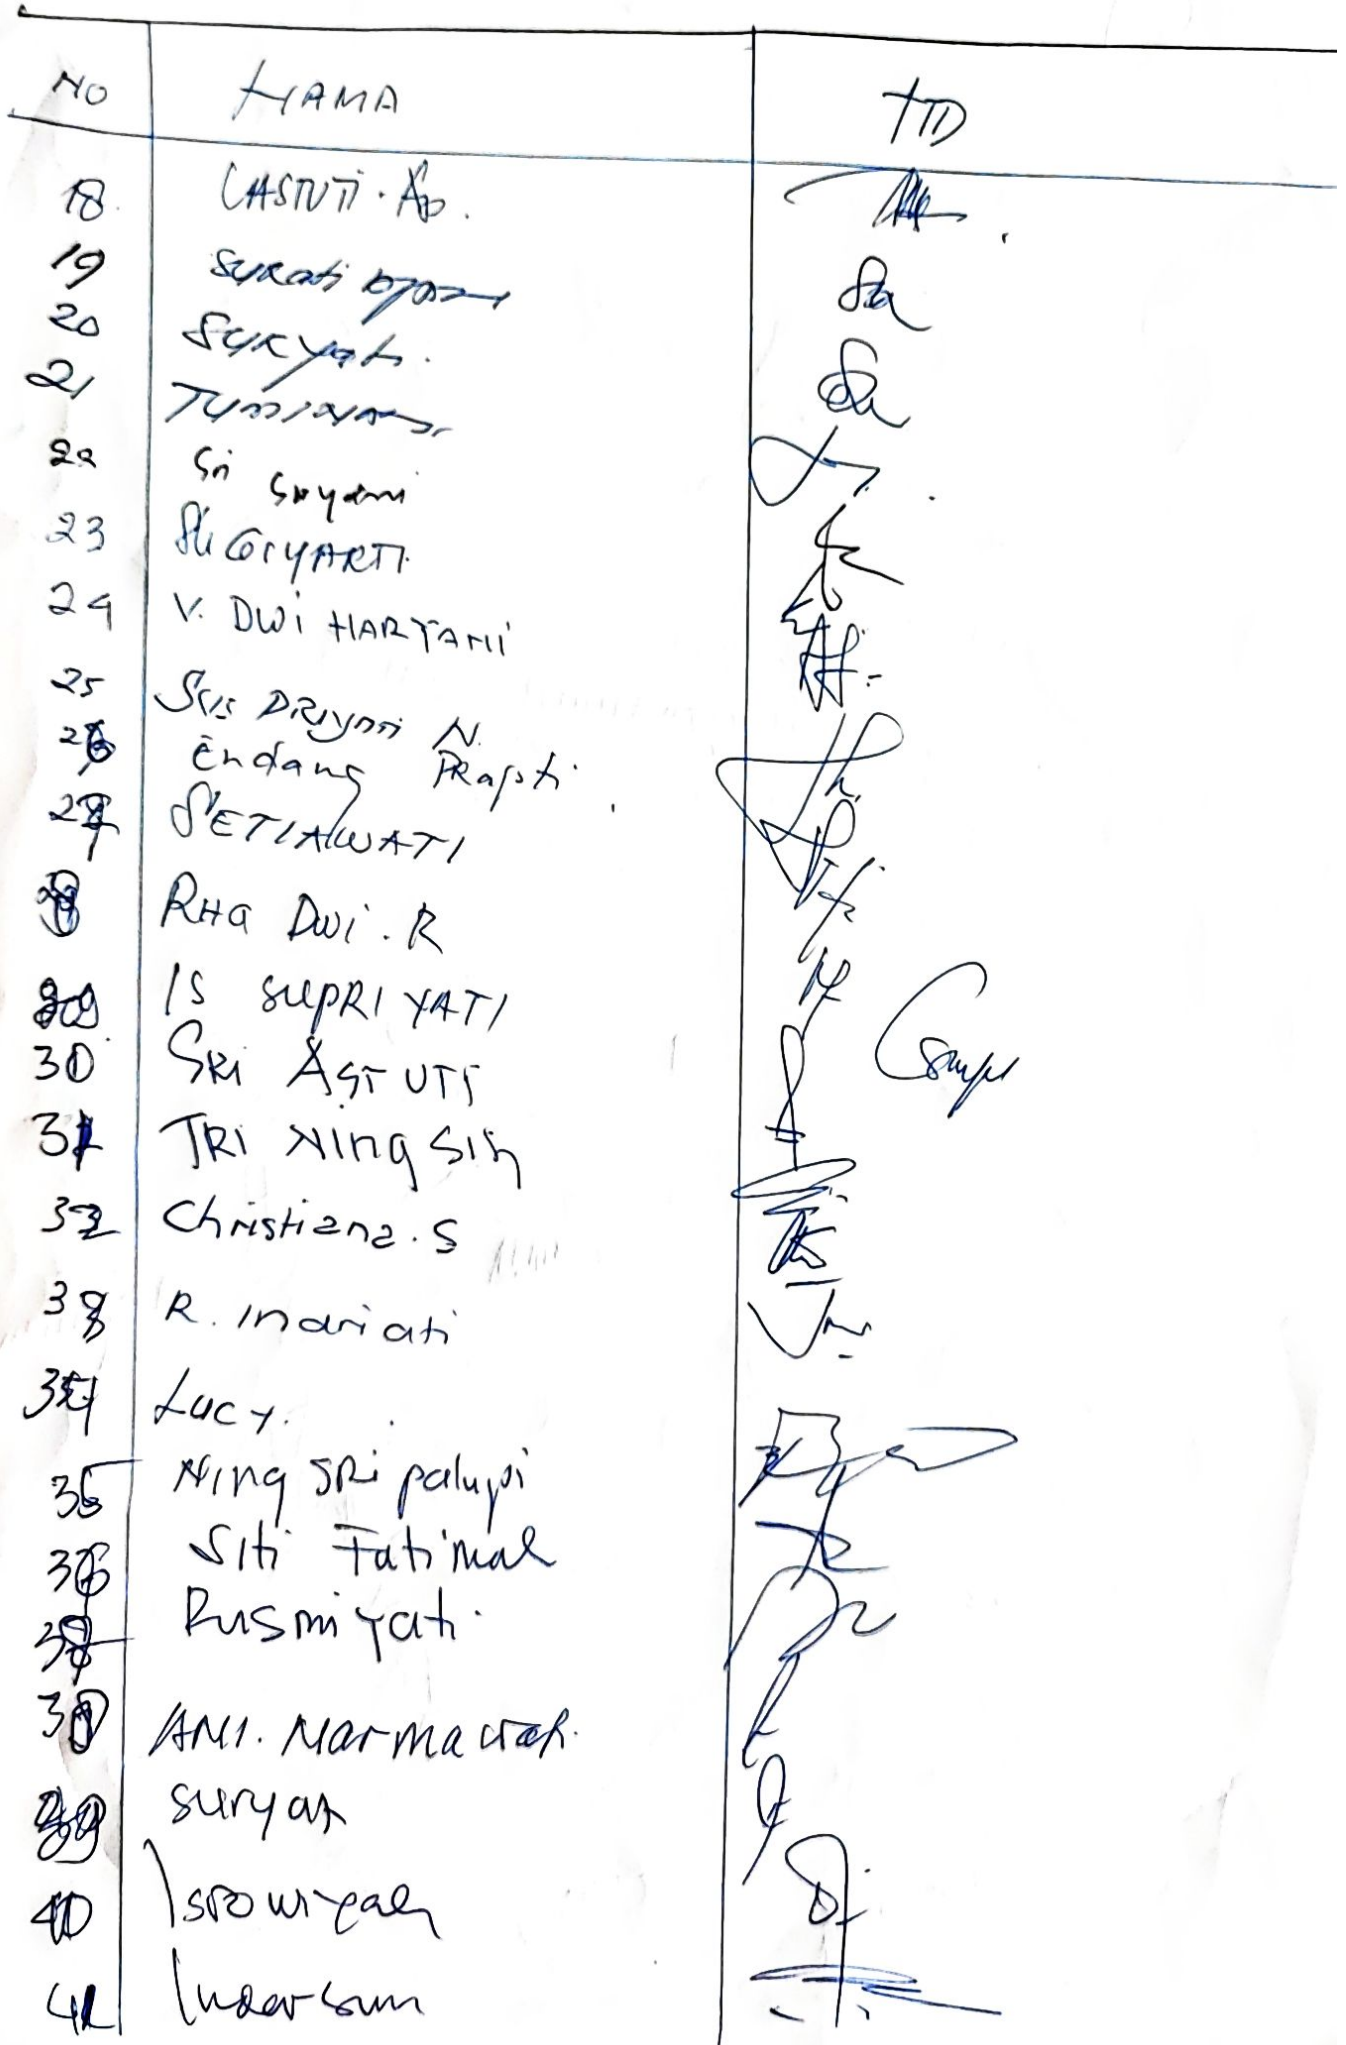 NO NAMA TTD
18 LASTUTI. AD.
19 Surati
20 Suryati.
21
22 Sri Suyami
23 Sugiyarti
24 V. DWi HARYANI
25 Sus Driyati N.
26 Endang PRapti
27 SETIAWATI
28 RHa Dwi. R
29 IS SUPRIYATI
30 SRi ASTUTI
31 TRi Ningsih
32 Christiana. S
33 R. Indriati
34 Lucy.
35 Ning SRi palupi
36 Siti Fatimah
37 Rusmiyati
38 ANI.
39 Suryati
40 Isrowiyah
41